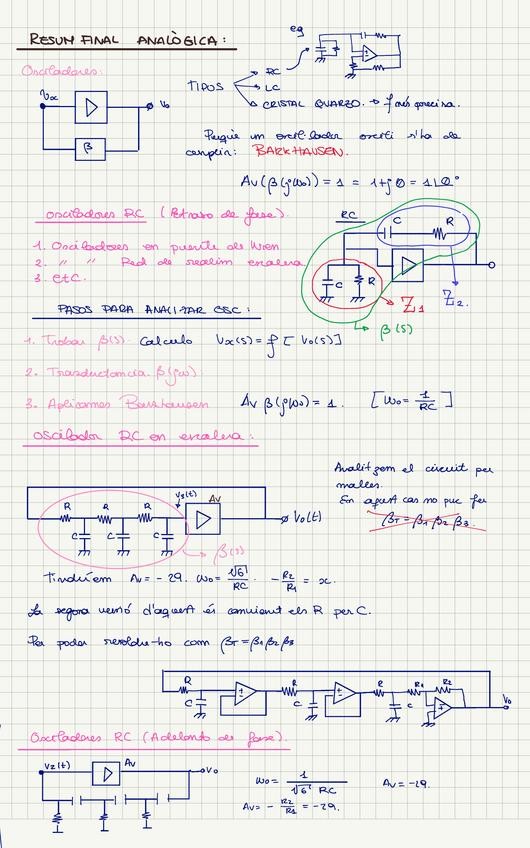 eg
RESUM FINAL ANALÒGICA:
Osciladores:
Vx
Vo
β
TIPOS
RC
LC
CRISTAL QUARZO. → f més precisa.
Perquè un oscil·lador oscili s'ha de
complir: BARKHAUSEN.
Av(β(jωo)) = 1 = 1+j0 = 1∠0°
Osciladores RC (Retraso de fase).
RC
C
R
1. Osciladores en puente de Wien
2. " " Red de realim escalera
3. etC.
C
R
Z1
Z2.
β(s)
PASOS PARA ANALIZAR OSC:
1. Trobar β(s). Calculo Vx(s) = f [Vo(s)]
2. Trasductancia β(jω)
3. Aplicamos Barkhausen Av β(jωo) = 1. [ωo = 1/RC]
Oscilador RC en escalera:
Analitzem el circuit per
malles.
En aquest cas no puc fer
βT = β1 β2 β3.
R
R
R
C
C
C
V3(t)
Av
Vo(t)
β(s)
Tindríem Av = -29. ωo = √6/RC . -R2/R1 = x.
La segona versió d'aquest és canviant els R per C.
Per poder resoldre-ho com βT = β1 β2 β3
R
C
R
C
R
C
R1
R2
Vo
Osciladores RC (Adelanto de fase).
V2(t)
Av
Vo
ωo = 1/√6 RC
Av = -29.
Av = -R2/R1 = -29.